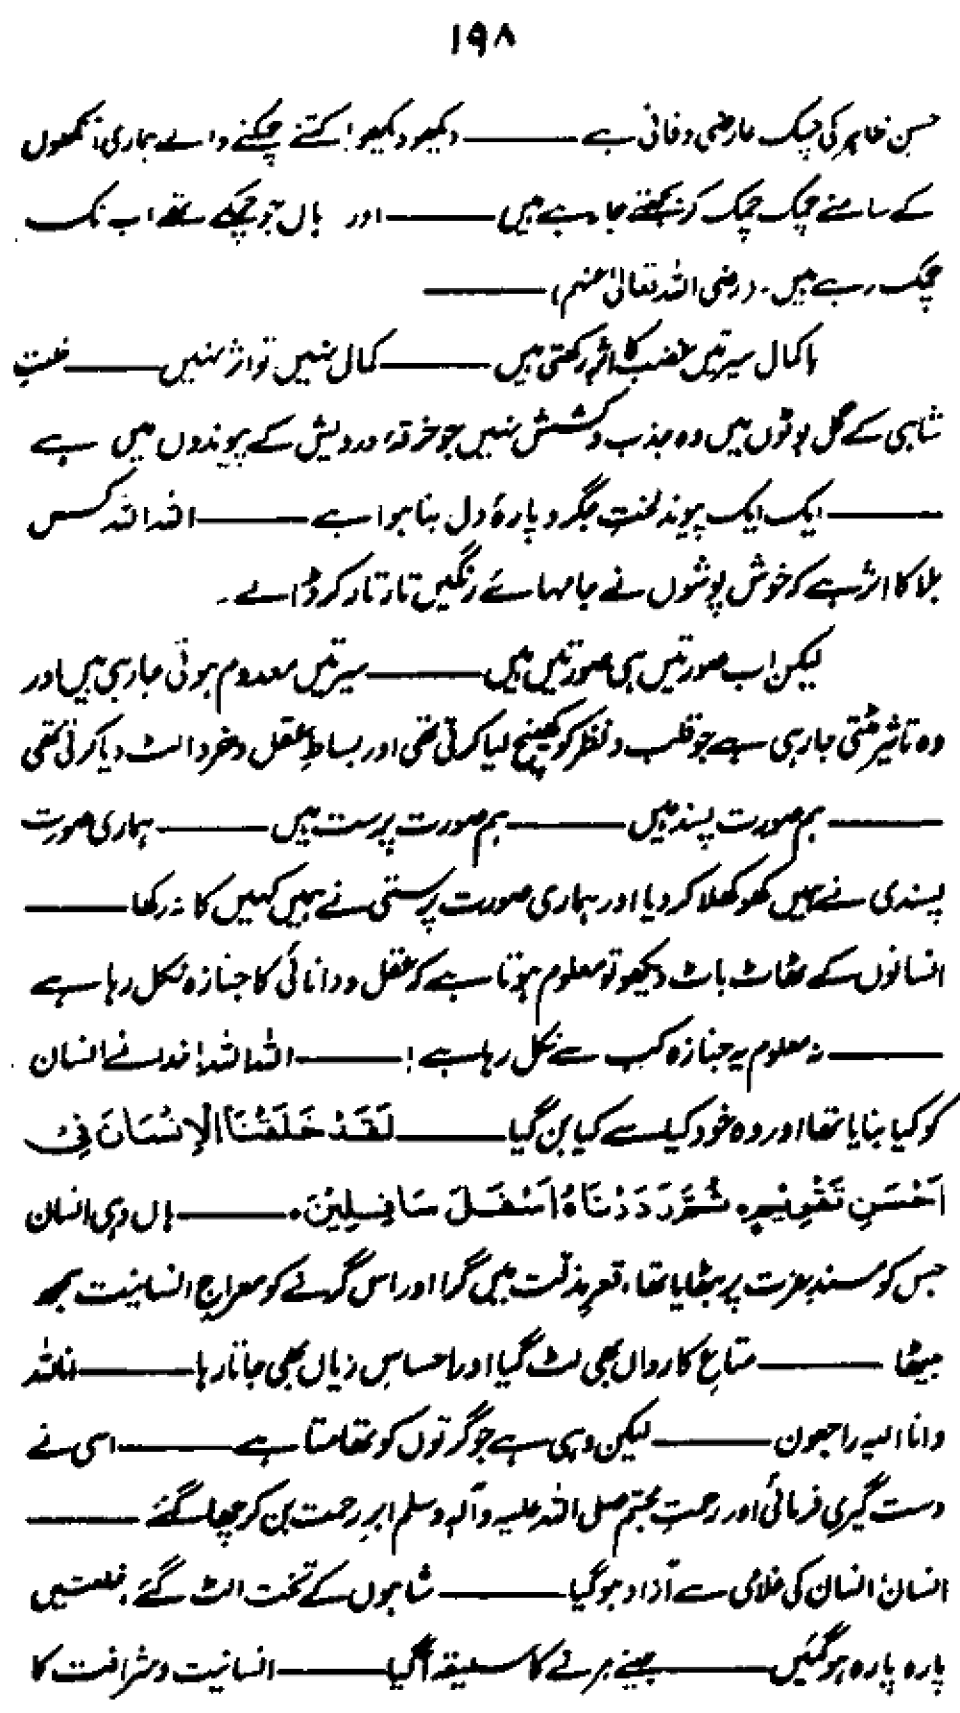 ۱۹۸
حسن ظاہر کی چمک عارضی و فانی ہے ——— دیکھو دیکھو! کتنے چمکنے والے ہماری آنکھوں
کے سامنے چمک چمک کر بجھتے جا رہے ہیں ——— اور ہاں جو چمکے تھے اب تک
چمک رہے ہیں۔ (رضی اللہ تعالیٰ عنہم) ———
باکمال سیرتیں غضب کا اثر رکھتی ہیں ——— کمال نہیں تو اثر نہیں ——— خلعتِ
شاہی کے گل بوٹوں میں وہ جذب و کشش نہیں جو خرقۂ درویش کے پیوندوں میں ہے
——— ایک ایک پیوند لختِ جگر و پارۂ دل بنا ہوا ہے ——— اللہ اللہ کس
بلا کا اثر ہے کہ خوش پوشوں نے جامہائے رنگیں تار تار کر ڈالے۔
لیکن اب صورتیں ہی صورتیں ہیں ——— سیرتیں معدوم ہوتی جا رہی ہیں اور
وہ تاثیر مٹتی جا رہی ہے جو قلب و نظر کو کھینچ لیا کرتی تھی اور بساطِ عقل و خرد الٹ دیا کرتی تھی
——— ہم صورت پسند ہیں ——— ہم صورت پرست ہیں ——— ہماری صورت
پسندی نے ہمیں کھوکھلا کر دیا اور ہماری صورت پرستی نے ہمیں کہیں کا نہ رکھا ———
انسانوں کے ٹھاٹ باٹ دیکھو تو معلوم ہوتا ہے کہ عقل و دانائی کا جنازہ نکل رہا ہے
——— نہ معلوم یہ جنازہ کب سے نکل رہا ہے! ——— اللہ اللہ! خدا نے انسان
کو کیا بنایا تھا اور وہ خود کیا سے کیا بن گیا ——— لَقَدْ خَلَقْنَا الْاِنْسَانَ فِیْ
اَحْسَنِ تَقْوِیْمٍ۔ ثُمَّ رَدَدْنَاہُ اَسْفَلَ سَافِلِیْنَ۔ ——— ہاں وہی انسان
جس کو مسندِ عزت پر بٹھایا تھا، قعرِ مذلت میں گرا اور اس گرنے کو معراجِ انسانیت سمجھ
بیٹھا ——— متاعِ کارواں بھی لٹ گیا اور احساسِ زیاں بھی جاتا رہا ——— انا للہ
وانا الیہ راجعون ——— لیکن وہی ہے جو گرتوں کو تھامتا ہے ——— اسی نے
دست گیری فرمائی اور رحمتِ مجتم صل اللہ علیہ وآلہٖ وسلم ابرِ رحمت بن کر چھا گئے ———
انسان، انسان کی غلامی سے آزاد ہو گیا ——— شاہوں کے تخت الٹ گئے، خلعتیں
پارہ پارہ ہو گئیں ——— جینے مرنے کا سلیقہ آ گیا ——— انسانیت و شرافت کا